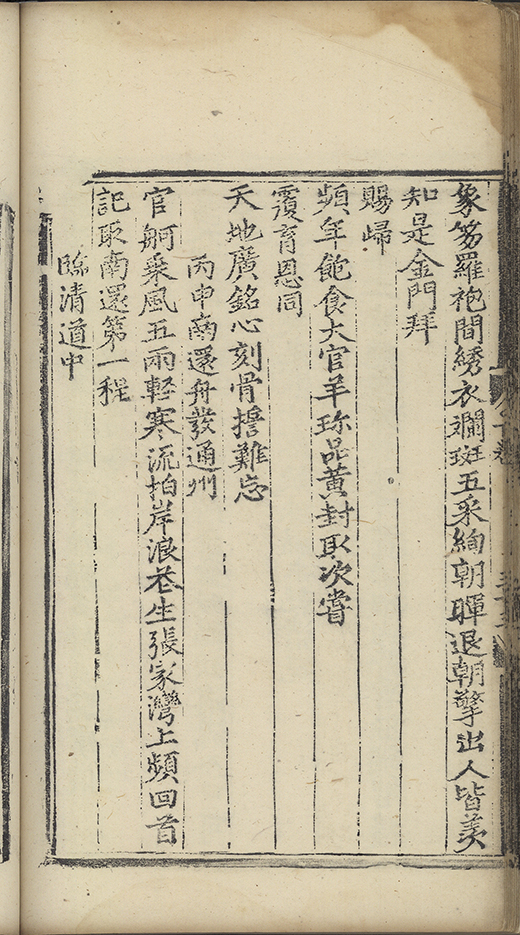 象笏羅袍間綉衣斕斑五采絢朝暉退朝擎出人皆羡
知是金門拜
賜歸
頻年飽食大官羊珎品黄封取次嘗
覆育恩同
天地廣銘心刻骨擔難忘
丙申南還舟發通州
官舸乘風五兩輕寒流拍岸浪花生張家灣上頻回首
記取南還第一程
臨清道中